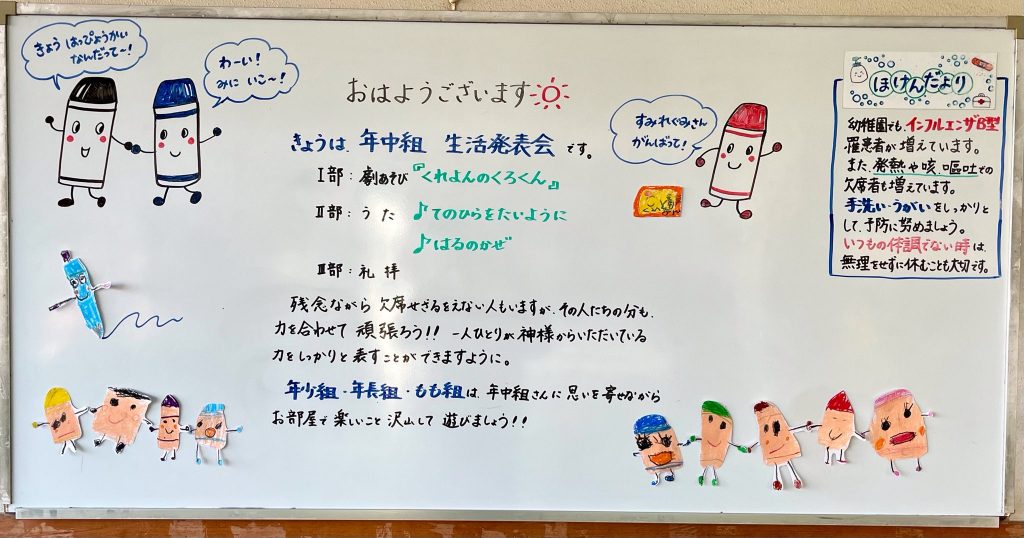 きょう はっぴょうかい
なんだって〜!
わーい!
みに いこ〜!
おはようございます
きょうは、年中組 生活発表会 です。
Ⅰ部:劇あそび『くれよんのくろくん』
Ⅱ部:うた ♪てのひらをたいように
♪はるのかぜ
Ⅲ部:礼拝
残念ながら 欠席せざるをえない人もいますが、その人たちの分も、
力を合わせて 頑張ろう!! 一人ひとりが 神様からいただいている
力をしっかりと 表すことが できますように。
年少組・年長組・もも組は、年中組さんに 思いを 寄せながら
お部屋で 楽しいこと 沢山して 遊びましょう!!
すみれぐみさん
がんばって!
ほけんだより
幼稚園でも、インフルエンザB型
罹患者が 増えています。
また、発熱や咳、嘔吐での
欠席者も増えています。
手洗い・うがいをしっかりと
して、予防に努めましょう。
いつもの体調でない時は、
無理をせずに休むことも大切です。